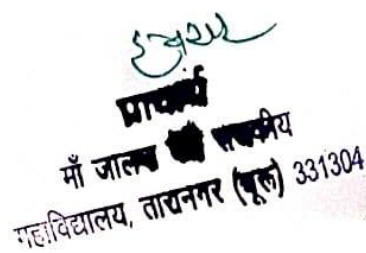 प्राचार्य
माँ जालपा राजकीय
महाविद्यालय, तारानगर (चूरू) 331304